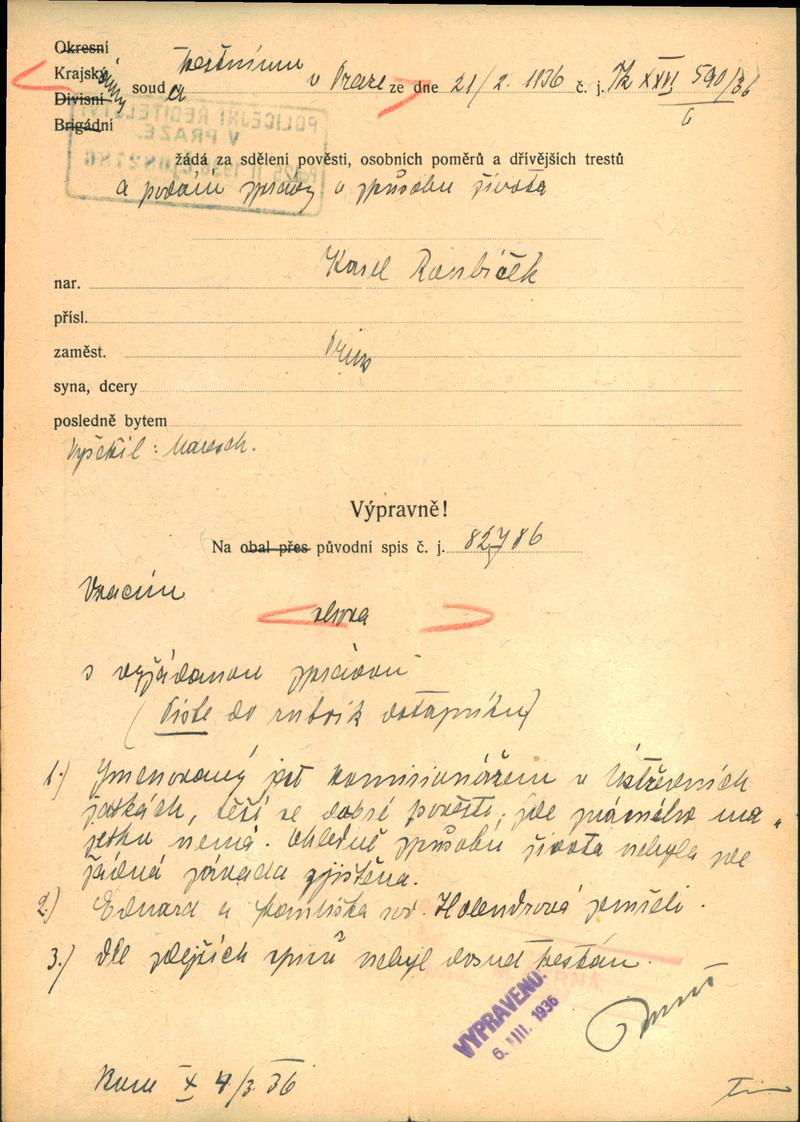 Okresní
Krajský
Divisní
Brigádní
soud trestnímu v Praze ze dne 21/2. 1936 č. j. Tk XXVI 590/36
6
POLICEJNÍ ŘEDITELSTVÍ
V PRAZE.
žádá za sdělení pověsti, osobních poměrů a dřívějších trestů
a podání zprávy o způsobu života
Karel
nar.
přísl.
zaměst.
syna, dcery
posledně bytem
Vyřídil:
Výpravně!
Na obal přes původní spis č. j. 82786
Vracím
s vyžádanou zprávou
(Pište do rubrik dotazníku)
1.) Jmenovaný jest komisionářem v Ústředních
jatkách, těší se dobré pověsti, zde známého ma-
jetku nemá. Ohledně způsobu života nebyla zde
žádná závada zjištěna.
2.) Eduard a roz. Holendrová zemřeli.
3.) Dle zdejších spisů nebyl dosud trestán.
VYPRAVENO:
6. III. 1936
X 4/3. 36